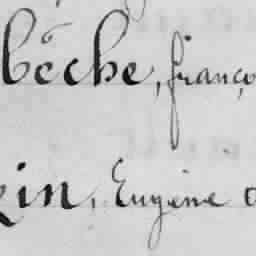 bêche, franço
in, Eugène